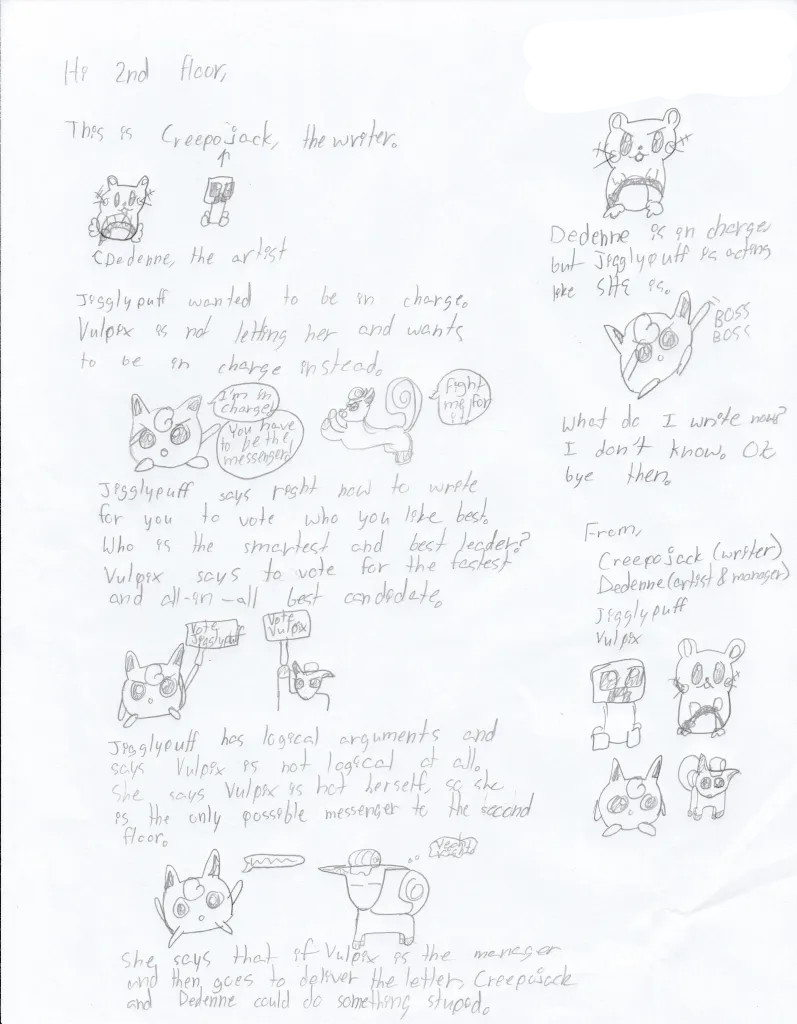 Hi 2nd floor,
This is Creepojack, the writer.
Dedenne, the artist
Jigglypuff wanted to be in charge.
Vulpix is not letting her and wants
to be in charge instead.
I'm in
charge!
You have
to be the
messenger!
Fight
me for
it!
Jigglypuff says right now to write
for you to vote who you like best.
Who is the smartest and best leader?
Vulpix says to vote for the fastest
and all-in-all best candidate.
Vote
Jigglypuff
Vote
Vulpix
Jigglypuff has logical arguments and
says Vulpix is not logical at all.
She says Vulpix is not herself, so she
is the only possible messenger to the second
floor.
Yeah!
She says that if Vulpix is the manager
and then goes to deliver the letter, Creepojack
and Dedenne could do something stupid.
Dedenne is in charge,
but Jigglypuff is acting
like SHE is.
BOSS
BOSS
What do I write now?
I don't know. Ok
bye then.
From,
Creepojack (writer)
Dedenne (artist & manager)
Jigglypuff
Vulpix